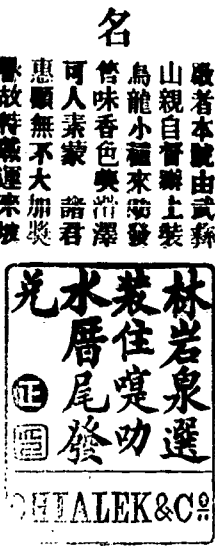 名
啟者本號由武彝
山親自督辦上裝
烏龍小種來叻發
售味香色美滑澤
可人素蒙 諸君
惠顧無不大加獎
故特 運來
林岩泉選
裝住嗼叻
水厝尾發
兌
正
CHIALEK&Cº